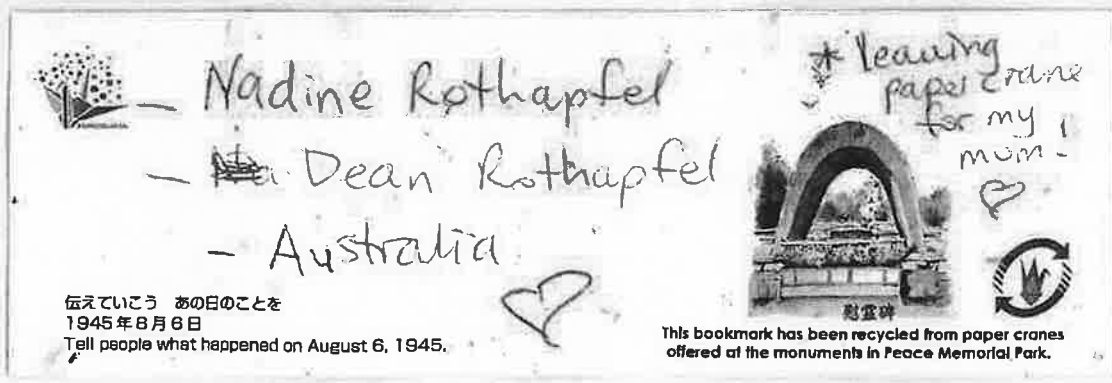 - Nadine Rothapfel
- Dean Rothapfel
- Australia
* leaving
paper crane
for my
mum!
慰霊碑
伝えていこう あの日のことを
1945年8月6日
Tell people what happened on August 6, 1945.
This bookmark has been recycled from paper cranes
offered at the monuments in Peace Memorial Park.